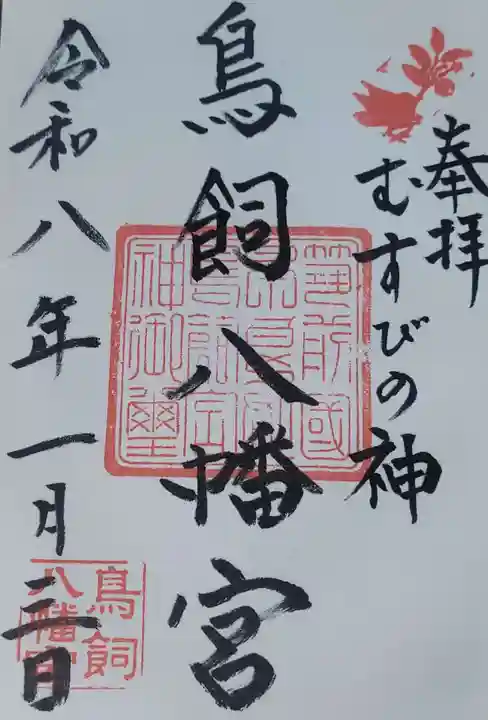 奉拝
むすびの神
鳥飼八幡宮
令和八年一月日
筑前國
神御璽
鳥飼
八幡宮